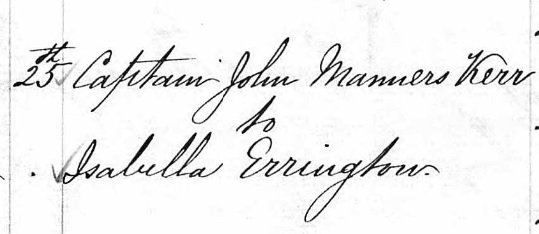 25th Captain John Manners Kerr
to
Isabella Errington.